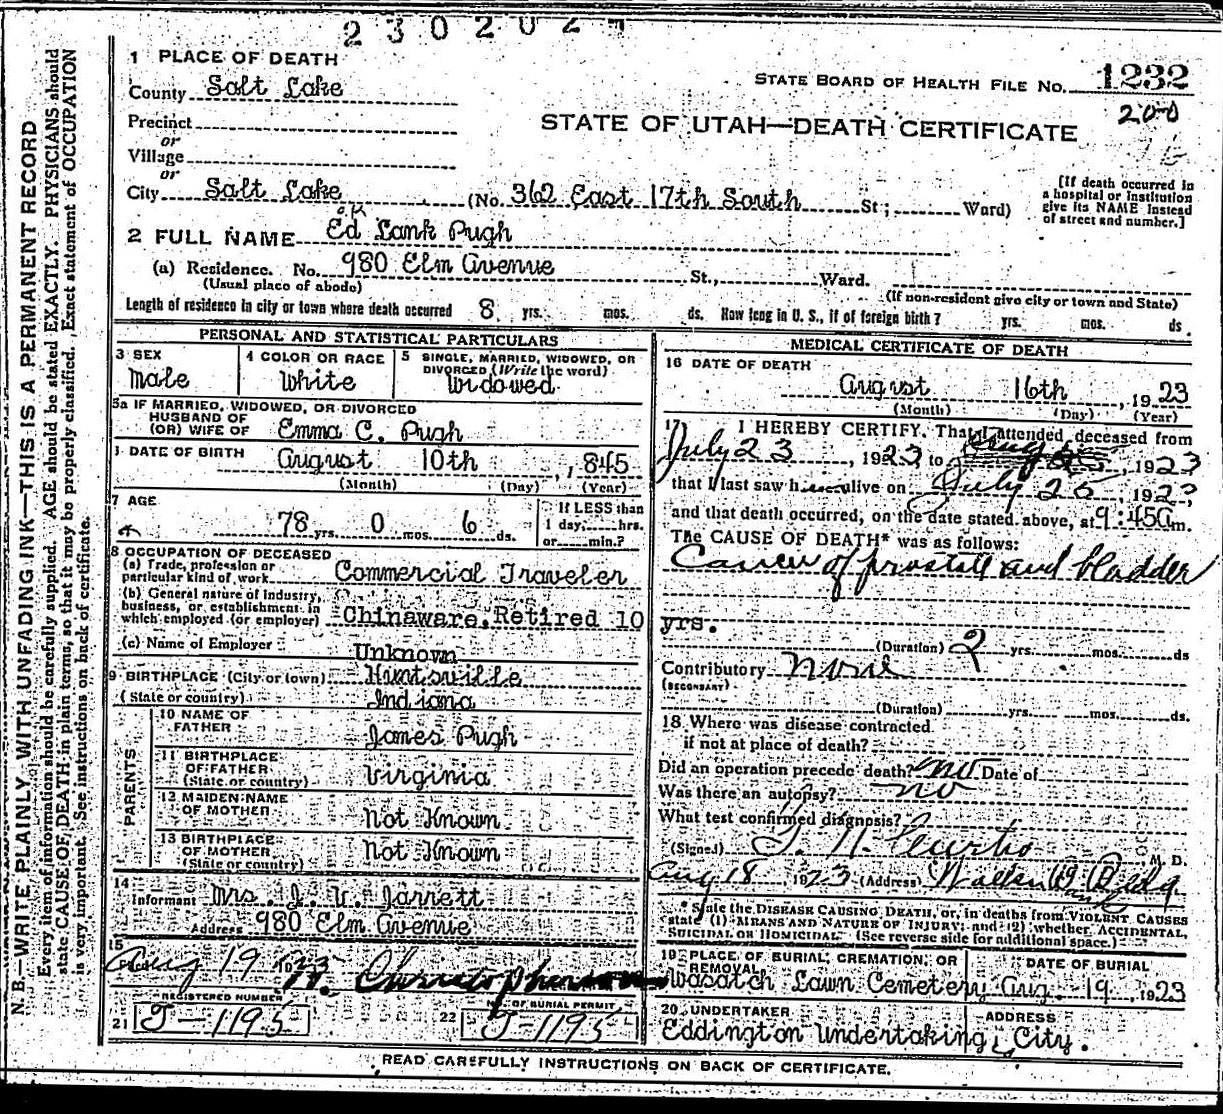 230202
1 PLACE OF DEATH
County Salt Lake
STATE BOARD OF HEALTH FILE No. 1232
200
Precinct
or
Village
or
STATE OF UTAH—DEATH CERTIFICATE
City Salt Lake (No. 362 East 17th South St; Ward)
[If death occurred in
a hospital or institution
give its NAME instead
of street and number.]
O.K
2 FULL NAME Ed Lank Pugh
(a) Residence. No. 980 Elm Avenue St., Ward.
(Usual place of abode)
(If non-resident give city or town and State)
Length of residence in city or town where death occurred 8 yrs. mos. ds. How long in U. S., if of foreign birth? yrs. mos. ds.
PERSONAL AND STATISTICAL PARTICULARS
3 SEX
Male
4 COLOR OR RACE
White
5 SINGLE, MARRIED, WIDOWED, OR
DIVORCED (Write the word)
Widowed
5a IF MARRIED, WIDOWED, OR DIVORCED
HUSBAND OF
(OR) WIFE OF Emma C. Pugh
DATE OF BIRTH August 10th, 845
(Month) (Day) (Year)
7 AGE
78 yrs. 0 mos. 6 ds.
If LESS than
1 day, hrs.
or min.?
8 OCCUPATION OF DECEASED
(a) Trade, profession or
particular kind of work Commercial Traveler
(b) General nature of industry,
business, or establishment in
which employed (or employer) Chinaware. Retired 10
yrs.
(c) Name of Employer
Unknown
9 BIRTHPLACE (City or town) Huntsville
(State or country) Indiana
PARENTS
10 NAME OF
FATHER James Pugh
11 BIRTHPLACE
OF FATHER
(State or country) Virginia
12 MAIDEN NAME
OF MOTHER Not Known
13 BIRTHPLACE
OF MOTHER
(State or country) Not Known
14
Informant Mrs. J. V. Jarrett
Address 980 Elm Avenue
15
Aug 19 1923 W. Christopherson
REGISTERED NUMBER
21 J-1195
NO. OF BURIAL PERMIT
22 J-1195
MEDICAL CERTIFICATE OF DEATH
16 DATE OF DEATH
August 16th, 1923
(Month) (Day) (Year)
17 I HEREBY CERTIFY, That I attended deceased from
July 23, 1923 to Aug, 1923
that I last saw him alive on July 25, 1923,
and that death occurred, on the date stated above, at 9:45 a m.
The CAUSE OF DEATH* was as follows:
Cancer of prostate and bladder
(Duration) 2 yrs. mos. ds
Contributory None
(SECONDARY)
(Duration) yrs. mos. ds.
18 Where was disease contracted
if not at place of death?
Did an operation precede death? no Date of
Was there an autopsy? no
What test confirmed diagnosis?
(Signed) M. D.
Aug 18 1923 (Address) Walker Bk Bldg
* State the DISEASE CAUSING DEATH, or, in deaths from VIOLENT CAUSES
state (1) MEANS AND NATURE OF INJURY; and (2) whether ACCIDENTAL,
SUICIDAL OR HOMICIDAL. (See reverse side for additional space.)
19 PLACE OF BURIAL, CREMATION, OR
REMOVAL
Wasatch Lawn Cemetery
DATE OF BURIAL
Aug. 19, 1923
20 UNDERTAKER
Eddington Undertaking,
ADDRESS
City.
READ CAREFULLY INSTRUCTIONS ON BACK OF CERTIFICATE.
N. B.—WRITE PLAINLY, WITH UNFADING INK—THIS IS A PERMANENT RECORD
Every item of information should be carefully supplied. AGE should be stated EXACTLY. PHYSICIANS should
state CAUSE OF DEATH in plain terms, so that it may be properly classified. Exact statement of OCCUPATION
is very important. See instructions on back of certificate.